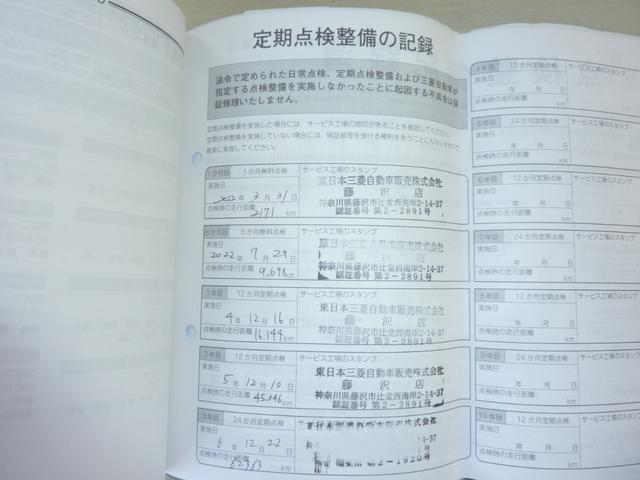 定期点検整備の記録
法令で定められた日常点検、定期点検整備および三菱自動車が
指定する点検整備を実施しなかったことに起因する不具合は保
証修理いたしません。
定期点検整備を実施した場合には、サービス工場の捺印があることを確認してください。
定期点検整備を実施していない場合には、保証修理を受ける権利を失うことにもなりますので
確実に実施してください。
1か月目 1か月無料点検 サービス工場のスタンプ
実施日
2022年 3月 31日
点検時の走行距離
2171 km
東日本三菱自動車販売株式会社
藤沢店
神奈川県藤沢市辻堂西海岸2-14-37
認証番号 第2-2891号
6か月目 6か月無料点検 サービス工場のスタンプ
実施日
2022年 9月 29日
点検時の走行距離
9,698 km
東日本三菱自動車販売株式会社
藤沢店
神奈川県藤沢市辻堂西海岸2-14-37
認証番号 第2-2891号
1年目 12か月定期点検 サービス工場のスタンプ
実施日
4年 12月 16日
点検時の走行距離
16,144 km
東日本三菱自動車販売株式会社
藤沢店
神奈川県藤沢市辻堂西海岸2-14-37
認証番号 第2-2891号
2年目 12か月定期点検 サービス工場のスタンプ
実施日
5年 12月 10日
点検時の走行距離
45346 km
東日本三菱自動車販売株式会社
藤沢店
神奈川県藤沢市辻堂西海岸2-14-37
認証番号 第2-2891号
3年目 24か月定期点検 サービス工場のスタンプ
実施日
6年 12月 22日
点検時の走行距離
62363 km
4年目 12か月定期点検 サービス工場のスタンプ
実施日
年 月 日
点検時の走行距離
km
5年目 24か月定期点検 サービス工場のスタンプ
実施日
年 月 日
点検時の走行距離
km
6年目 12か月定期点検 サービス工場のスタンプ
実施日
年 月 日
点検時の走行距離
km
7年目 24か月定期点検 サービス工場のスタンプ
実施日
年 月 日
点検時の走行距離
km
8年目 12か月定期点検 サービス工場のスタンプ
実施日
年 月 日
点検時の走行距離
km
9年目 24か月定期点検 サービス工場のスタンプ
実施日
年 月 日
点検時の走行距離
km
10年目 12か月定期点検 サービス工場のスタンプ
実施日
年 月 日
点検時の走行距離